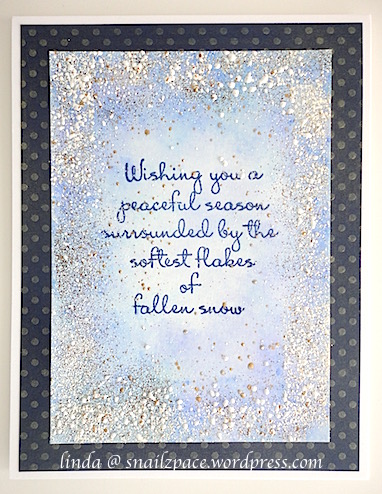 Wishing you a
peaceful season
surrounded by the
softest flakes
of
fallen snow
linda @ snailzpace.wordpress.com